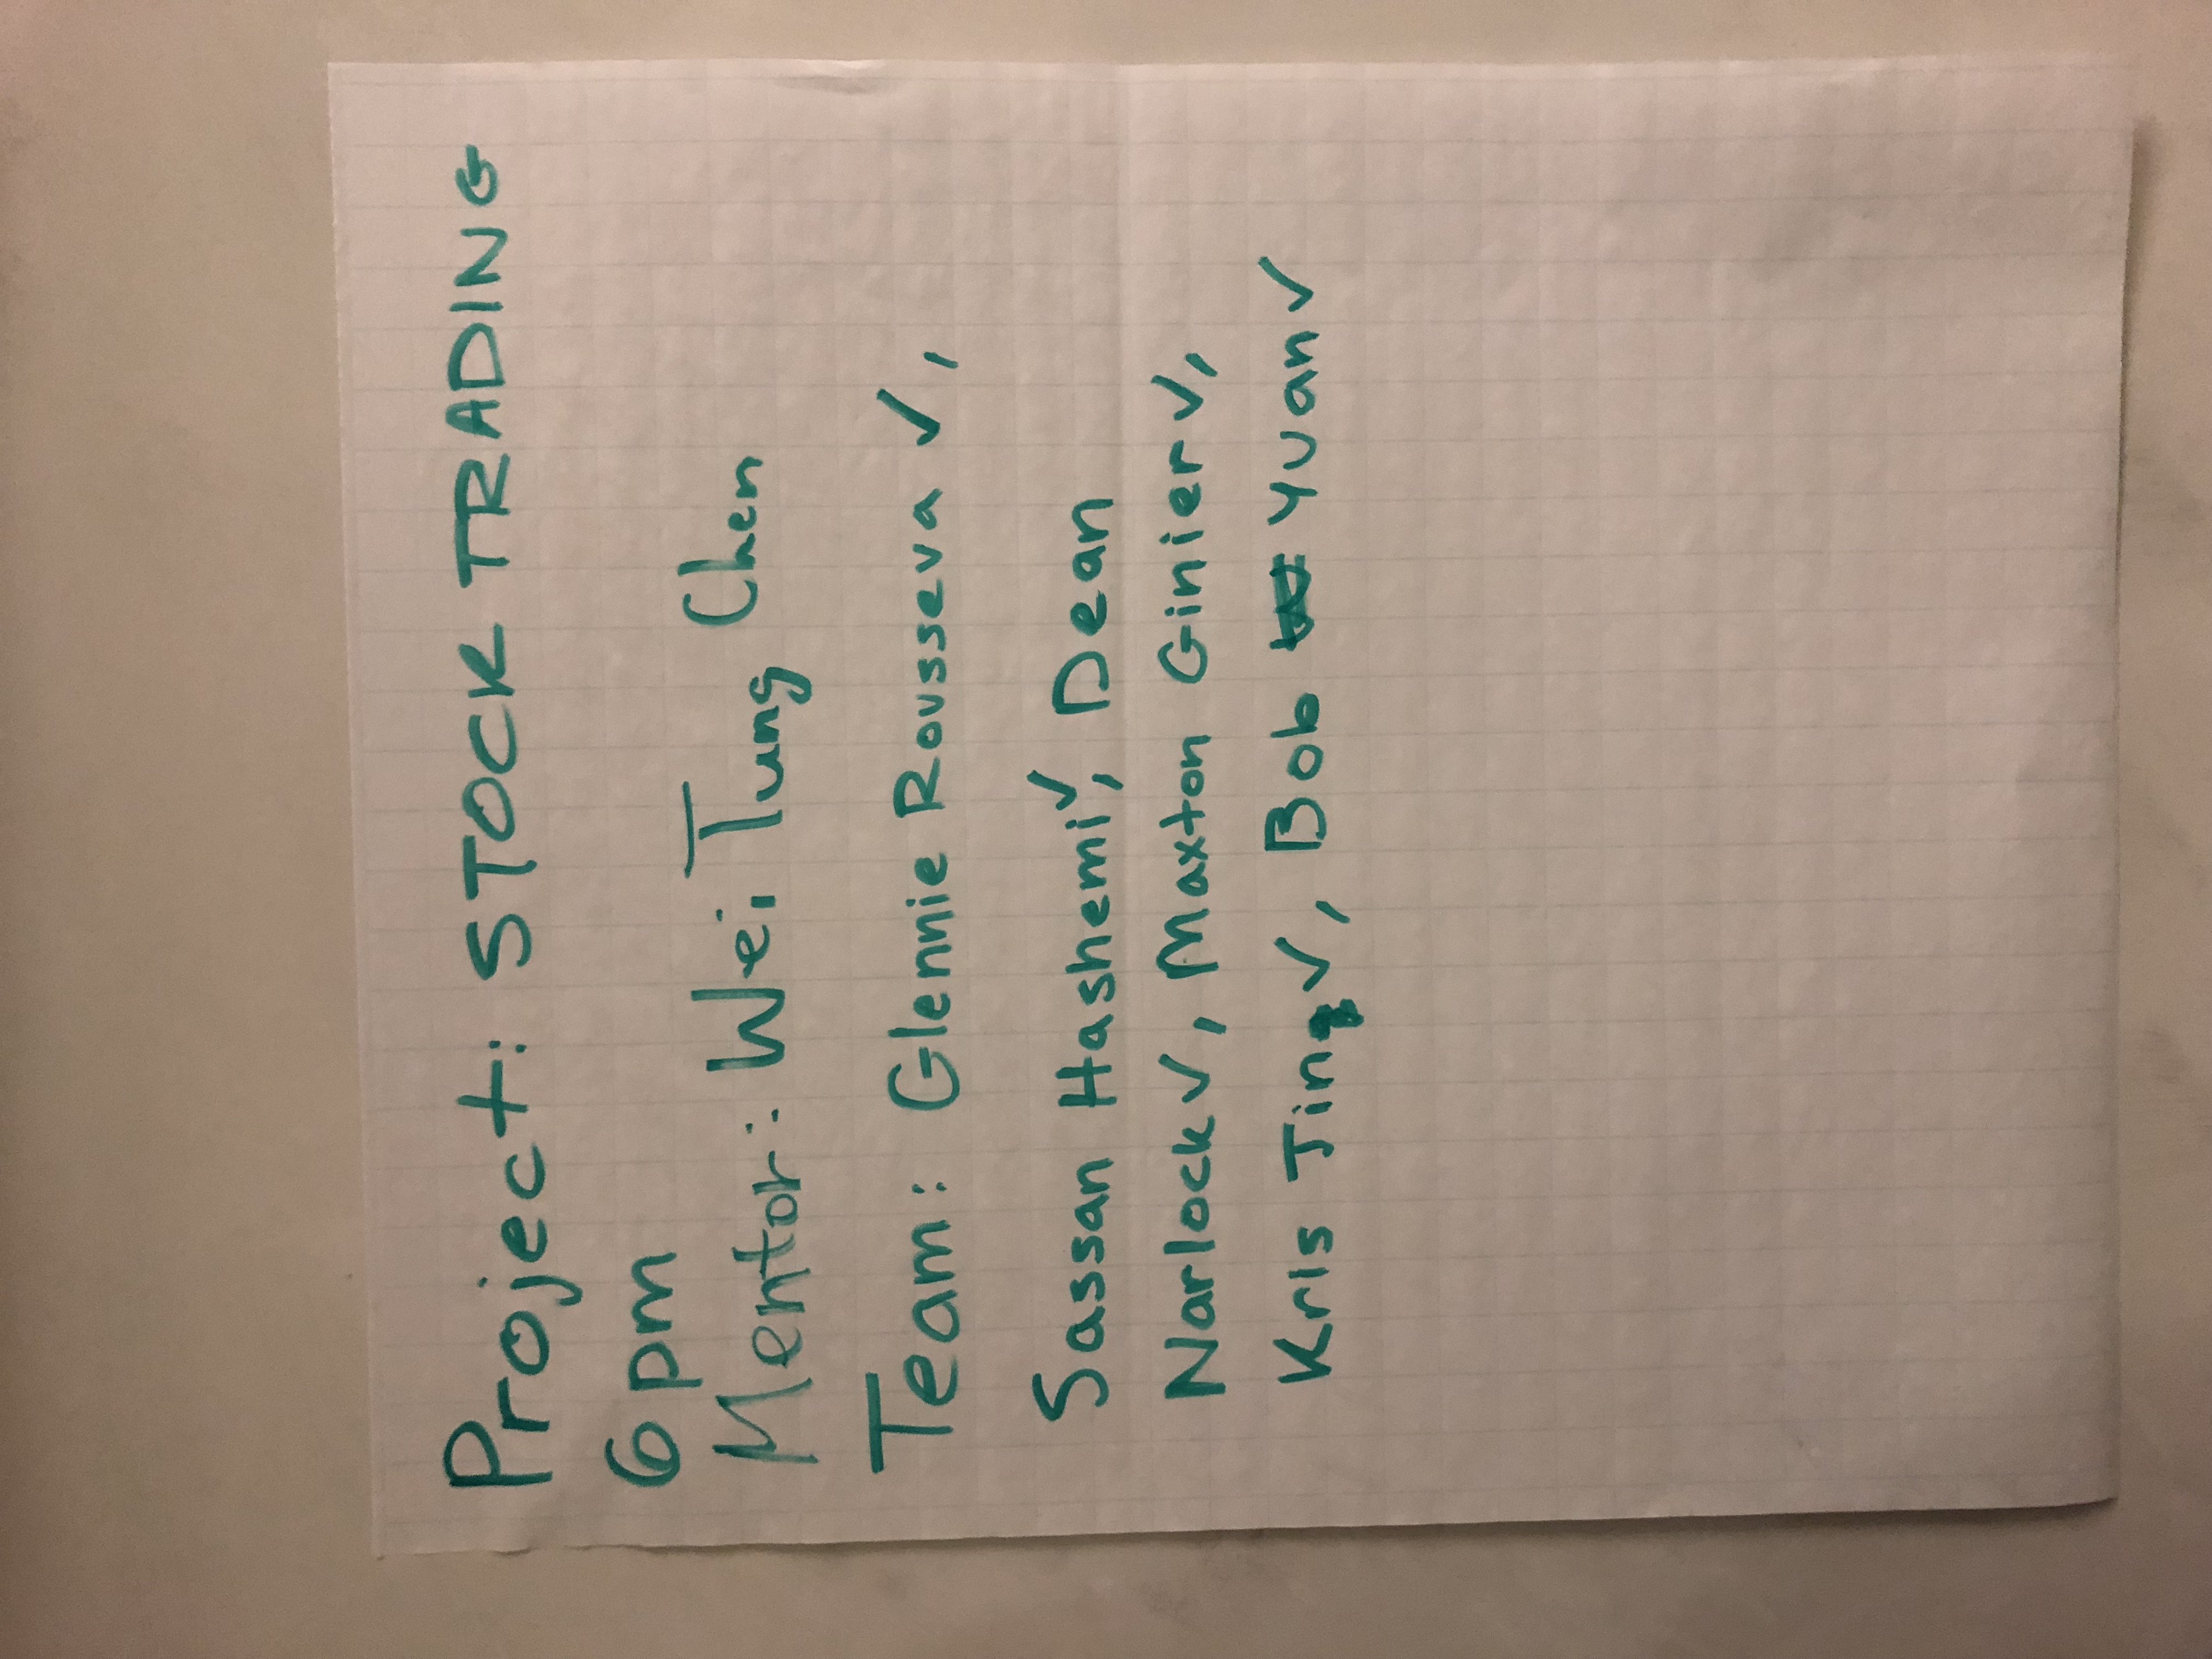 Project: STOCK TRADING
6pm
Mentor: Wei Tung Chen
Team: Glennie Rousseva ✓,
Sassan Hashemi✓, Dean
Narlock✓, Maxton Ginier✓,
Kris Jing✓, Bob Yuan✓